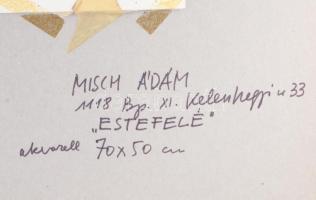 MISCH ÁDÁM
1118 Bp. XI. Kelenhegyi u 33
"ESTEFELÉ"
akvarell 70x50 cm